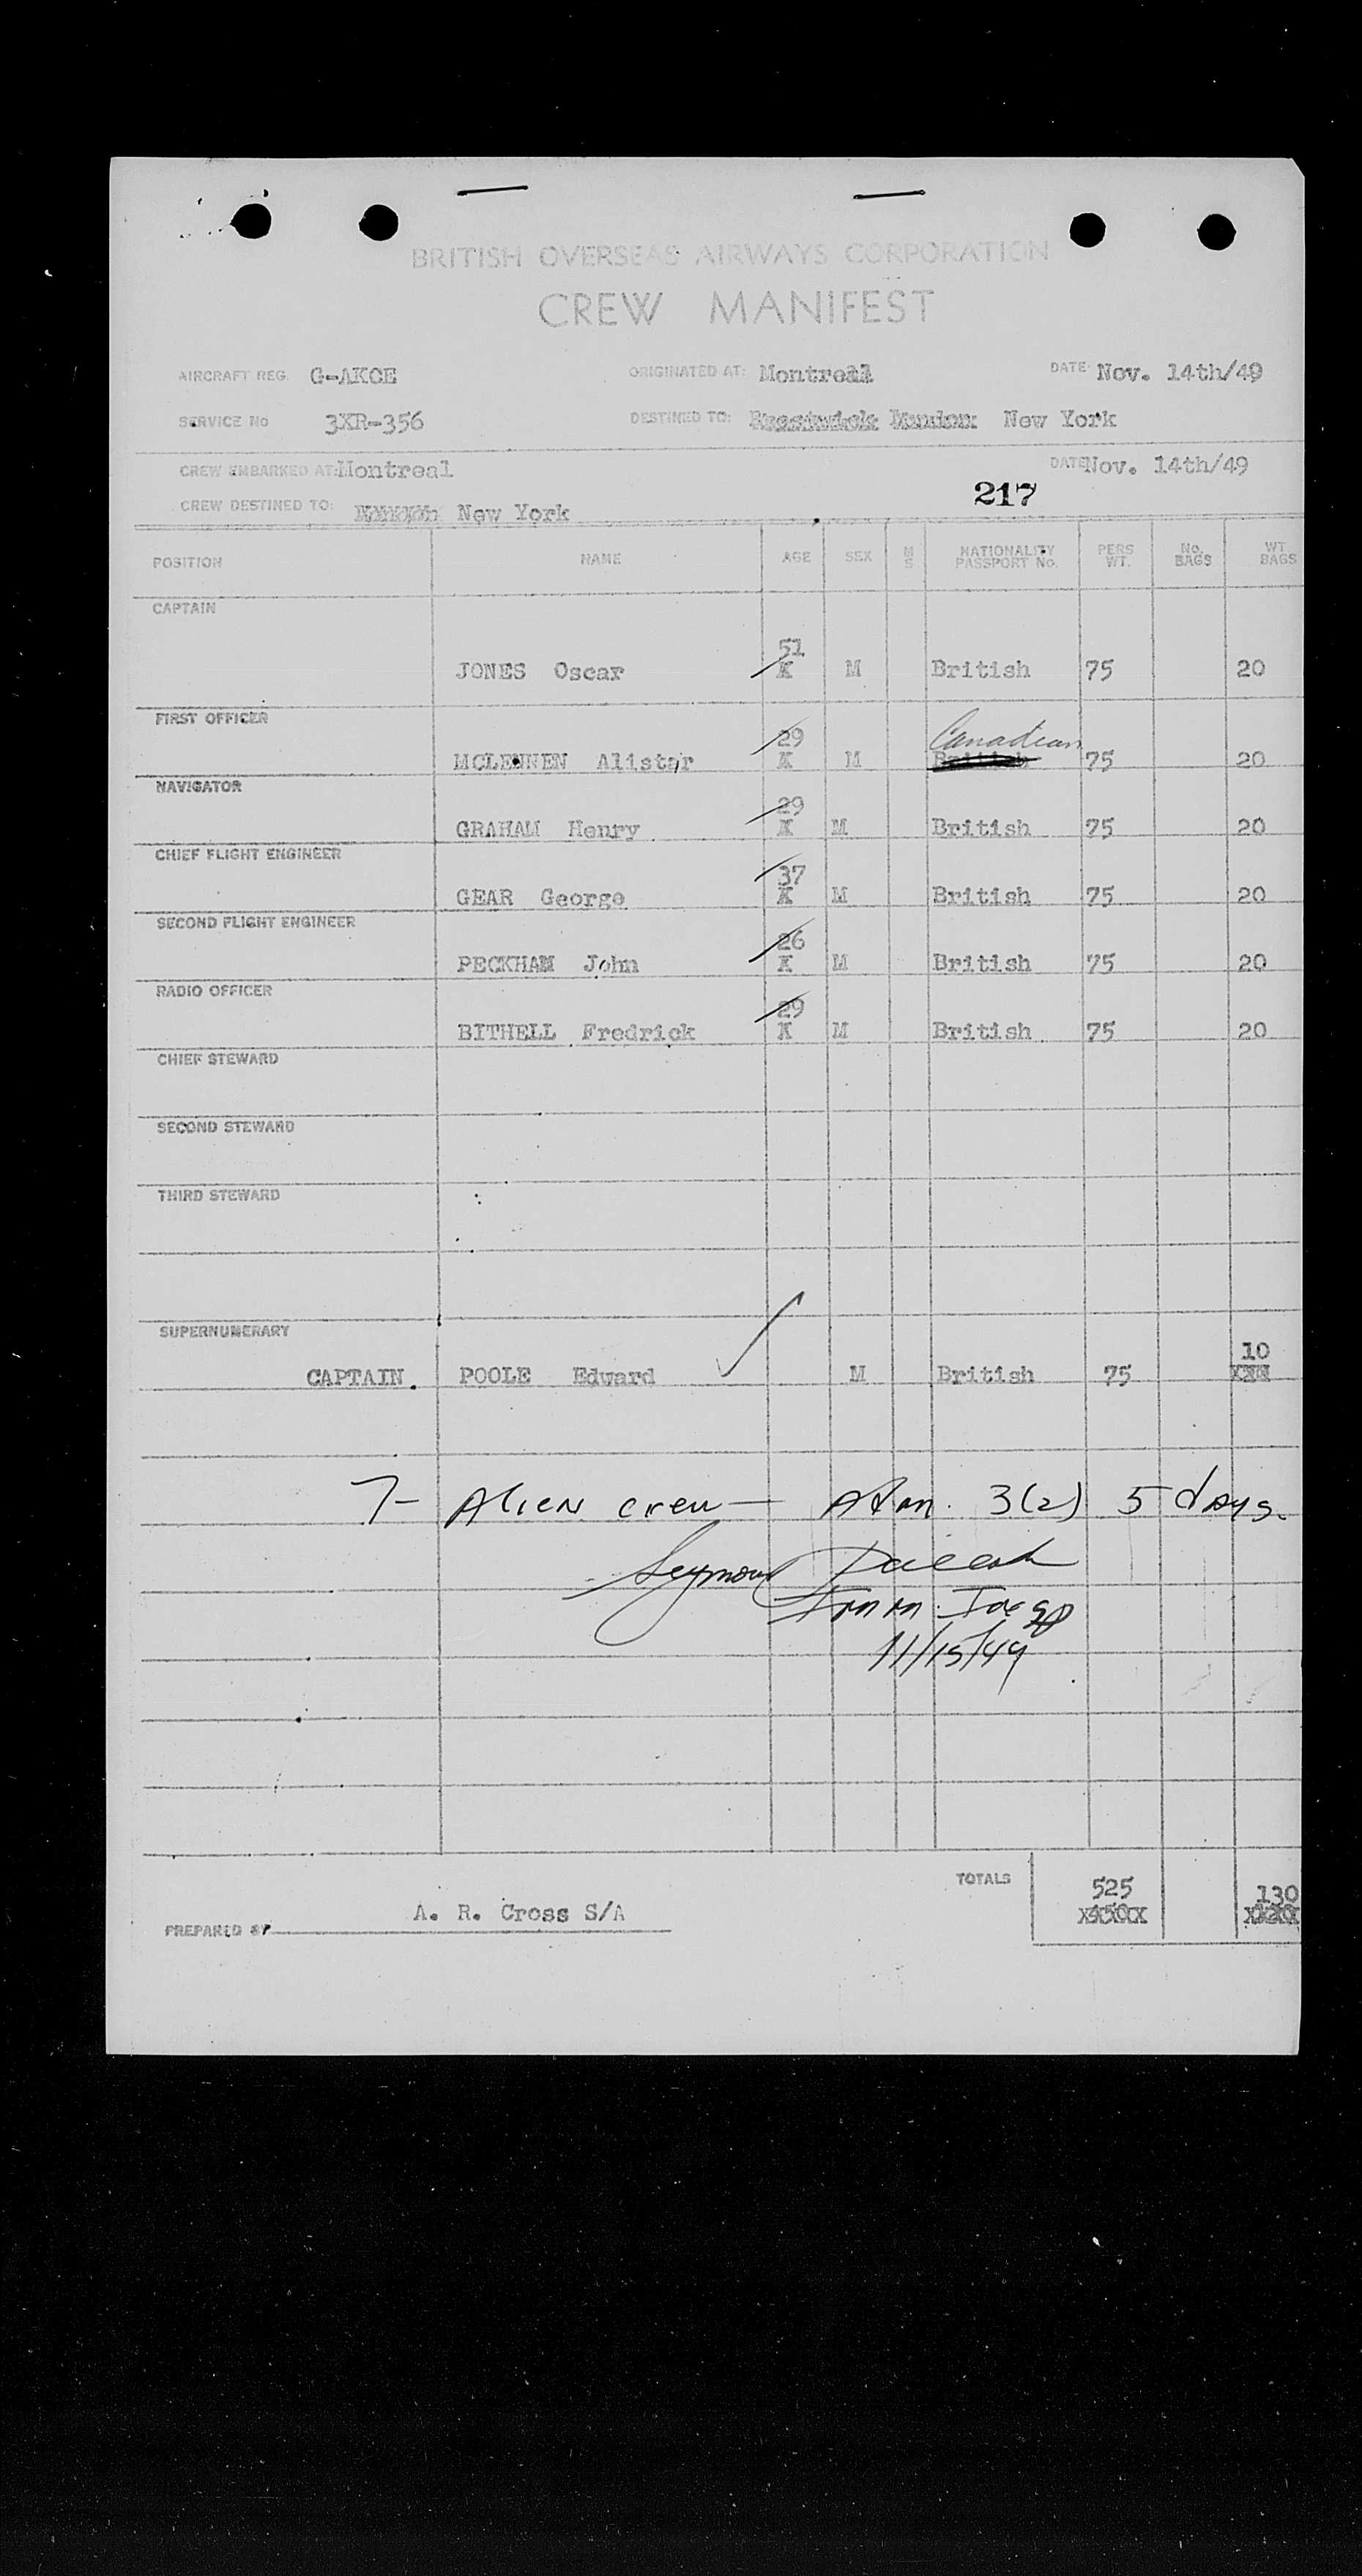 BRITISH OVERSEAS AIRWAYS CORPORATION
CREW MANIFEST
AIRCRAFT REG. G-AKCE ORIGINATED AT: Montreal DATE Nov. 14th/49
SERVICE No 3XR-356 DESTINED TO: Prestwick London New York
CREW EMBARKED AT: Montreal DATE Nov. 14th/49
217
CREW DESTINED TO: New York
POSITION NAME AGE SEX M S NATIONALITY PASSPORT No. PERS WT. No. BAGS WT BAGS
CAPTAIN
51
JONES Oscar X M British 75 20
FIRST OFFICER
29 Canadian
MCLENNEN Alistar X M British 75 20
NAVIGATOR
29
GRAHAM Henry X M British 75 20
CHIEF FLIGHT ENGINEER
37
GEAR George X M British 75 20
SECOND FLIGHT ENGINEER
26
PECKHAM John X M British 75 20
RADIO OFFICER
29
BITHELL Fredrick X M British 75 20
CHIEF STEWARD
SECOND STEWARD
THIRD STEWARD
SUPERNUMERARY
10
CAPTAIN. POOLE Edward M British 75
7- Alien crew - Adm. 3(2) 5 days.
Seymour
Imm. Insp
11/15/49
TOTALS 525 130
A. R. Cross S/A
PREPARED BY